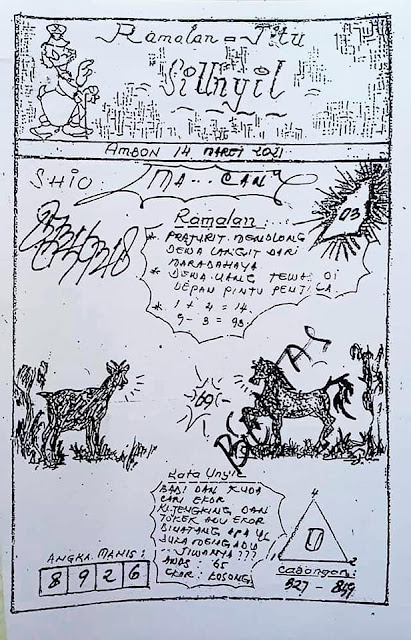 Ramalan = Jitu
Si Unyil
AMBON 14 MARET 2021
SHIO:
MA...CAN
03
Ramalan:
* PRAJURIT MENOLONG
DEWA LANGIT DARI
MARABAHAYA
* DEWA UANG TEWAS DI
DEPAN PINTU PENJARA
* 1 + 4 = 14
9 - 3 = 93
69
Kata Unyil
BABI DAN KUDA
CARI EKOR
DAN
TOKEK ADU EKOR
BINATANG APA YG
SUKA MENGADU
JIWANYA ???
AWAS : 65
EKOR : KOSONG
ANGKA MANIS :
8 9 2 6
4
0
1 2
CABANGAN:
927 - 849